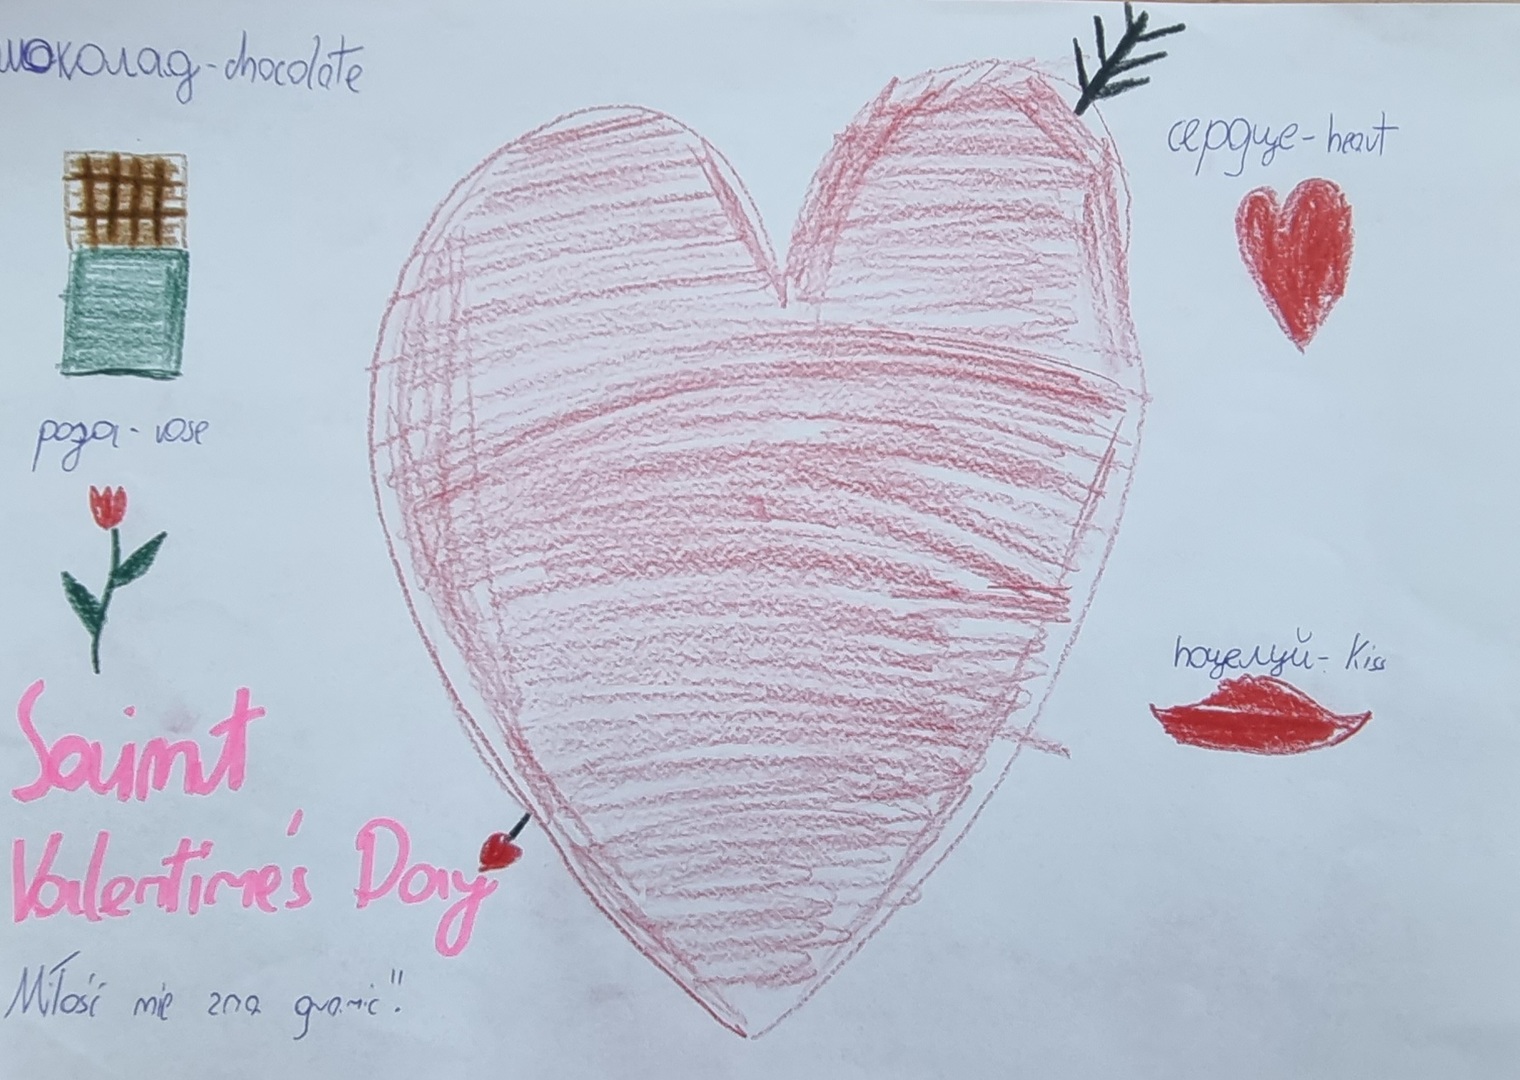 шоколад - chocolate
сердце - heart
роза - rose
поцелуй - kiss
Saint
Valentine's Day
Miłość nie zna granic".